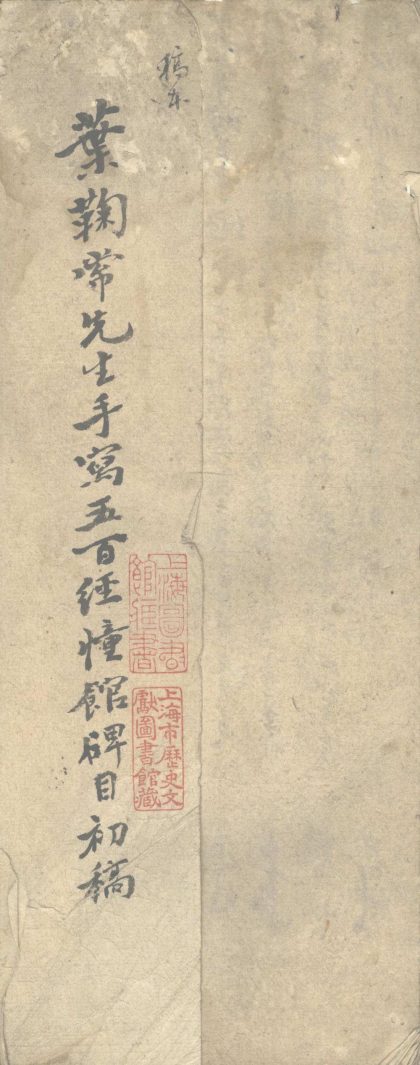 稿本
葉鞠裳先生手寫五百經幢館碑目初稿
上海圖書
館藏書
上海市歷史文
獻圖書館藏